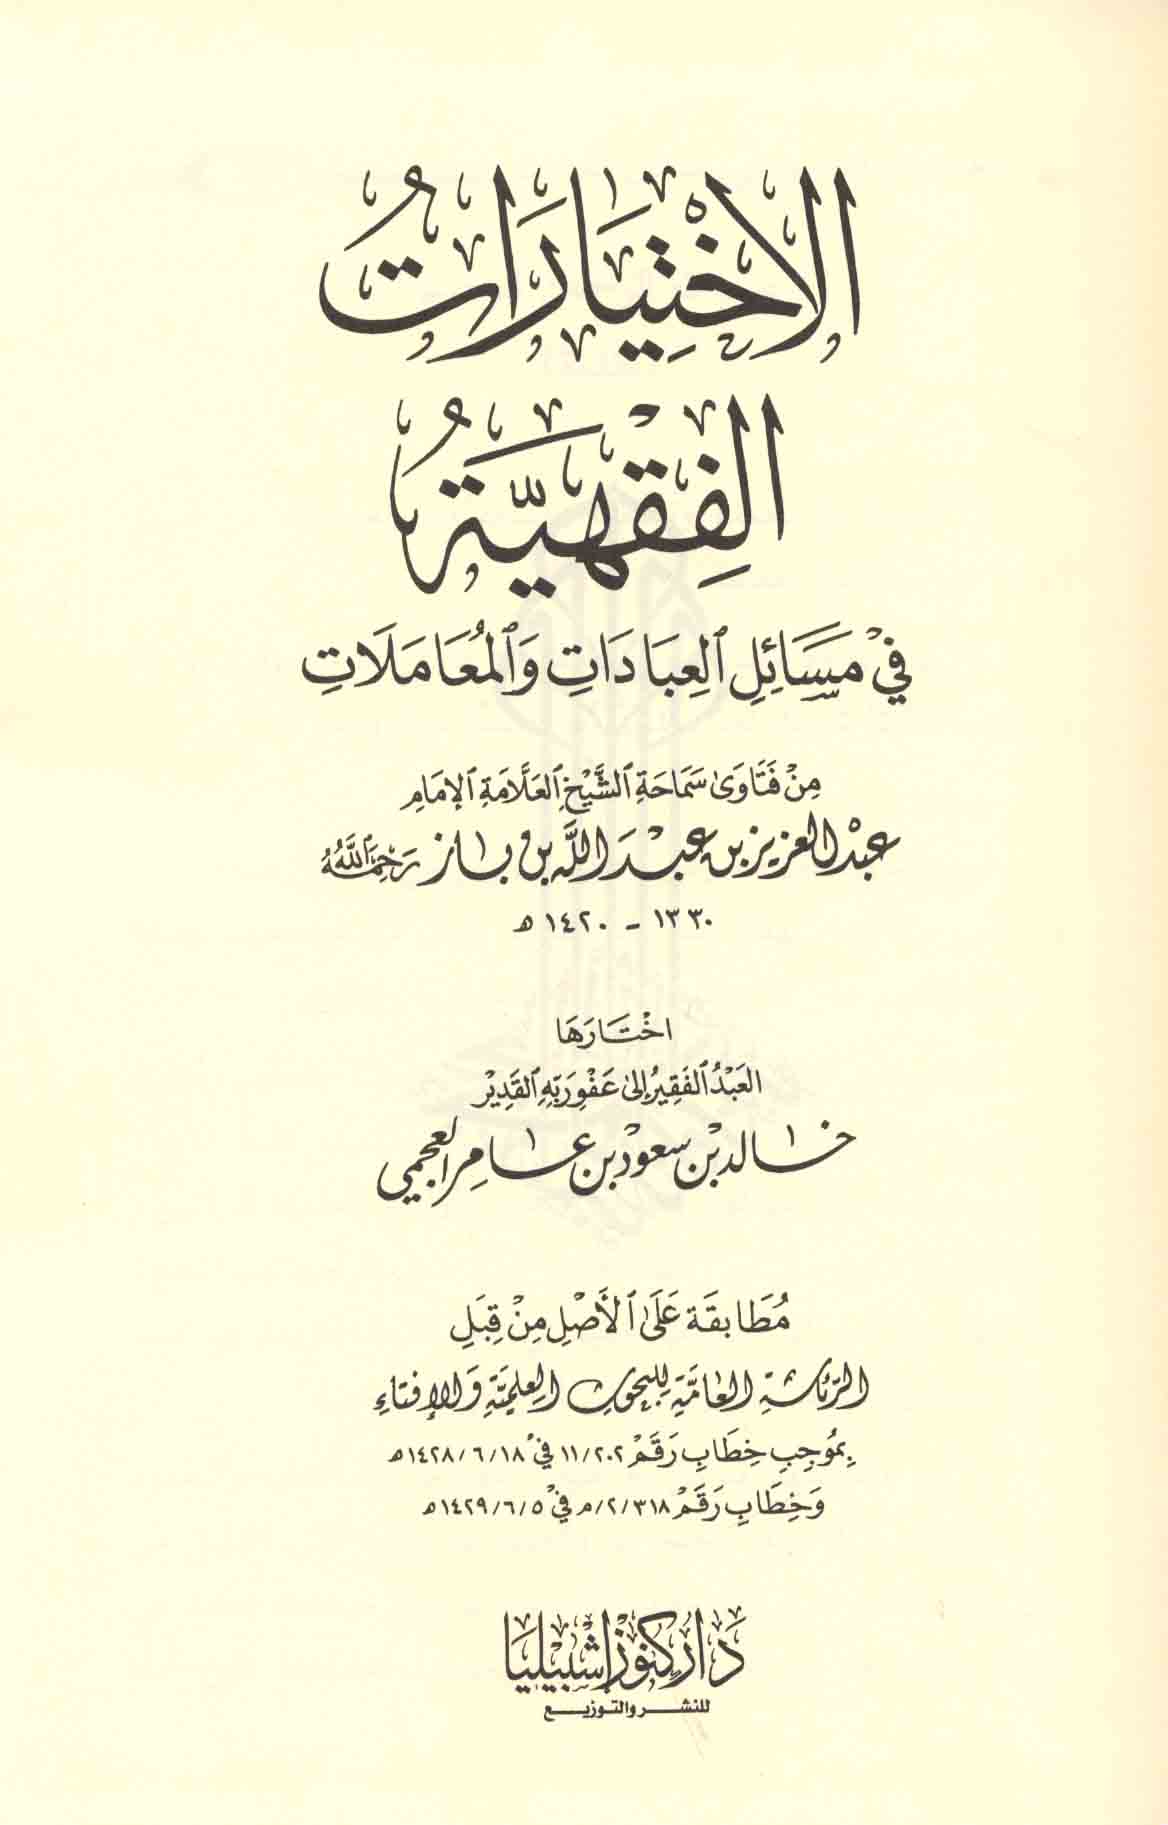 الاِخْتِيَارَاتُ
الفِقْهِيَّةُ
فِيْ مَسَائِلِ العِبَادَاتِ وَالمُعَامَلَاتِ
مِنْ فَتَاوَىٰ سَمَاحَةِ الشَّيْخِ العَلَّامَةِ الإِمَامِ
عبْد العزيز بن عبْد اللَّه بن باز رَحِمَهُ اللَّهُ
١٣٣٠ - ١٤٢٠ ه
اخْتَارَهَا
العَبْدُ الفَقِيرُ إِلىٰ عَفْوِ رَبِّهِ القَدِيْرِ
خالد بْن سعود بن عامر العجمي
مُطَابقَة عَلَىٰ الأَصْلِ مِنْ قِبَلِ
الرِّئَاسَةِ العَامَّةِ لِلبُحُوثِ العِلمِيَّةِ وَالإِفتَاءِ
بمُوجِبِ خِطَابِ رَقَمْ ١١/٢٠٢ فيْ ١٤٢٨/٦/١٨ه
وَخِطَابِ رَقَمْ ٢/٣١٨/م فيْ ١٤٢٩/٦/٥ه
دَار كُنُوز إشْبِيلِيَا
للنشر والتوزيع